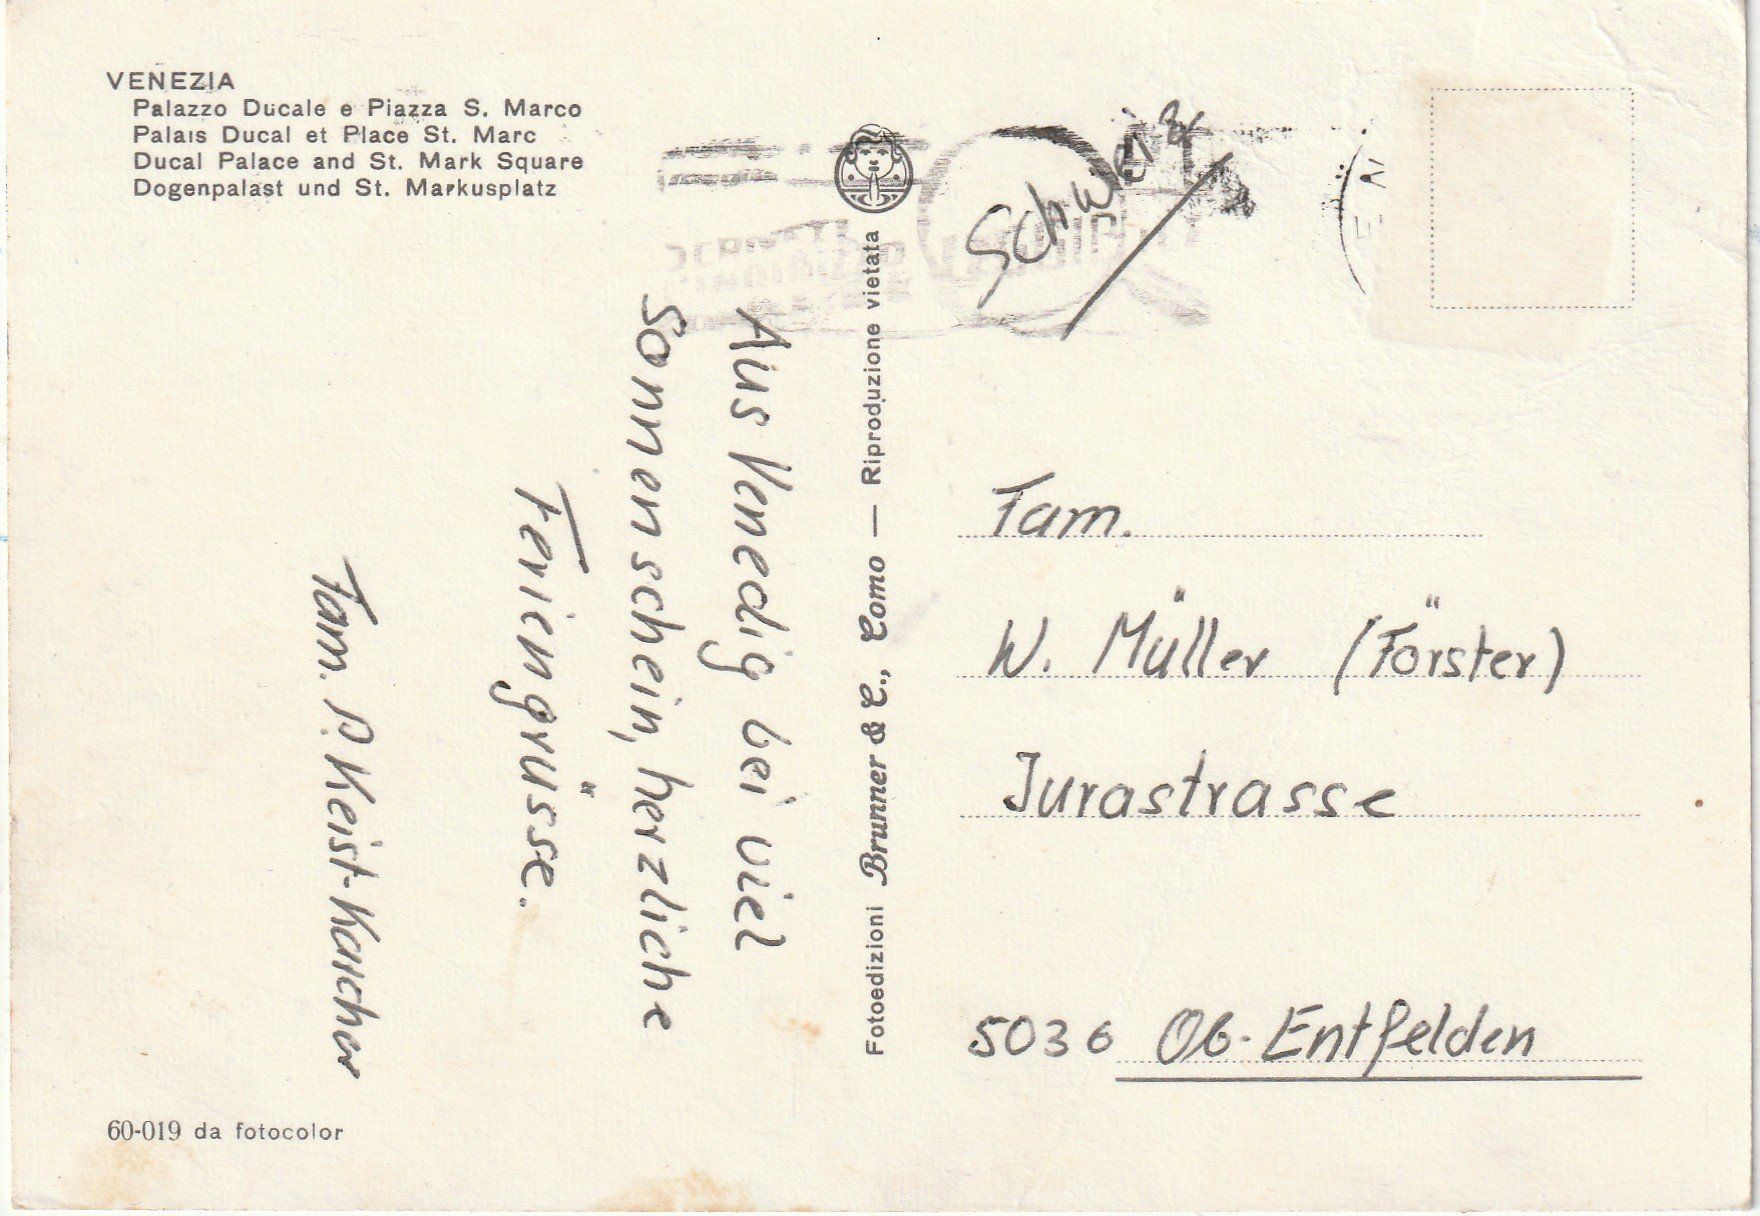 VENEZIA
Palazzo Ducale e Piazza S. Marco
Palais Ducal et Place St. Marc
Ducal Palace and St. Mark Square
Dogenpalast und St. Markusplatz
Aus Venedig bei viel
Sonnenschein, herzliche
Feriengrüsse.
Fam. P. Keist-Karcher
60-019 da fotocolor
Fotoedizioni Brunner & C., Como — Riproduzione vietata
Schweiz
Fam.
W. Müller (Förster)
Jurastrasse
5036 Ob-Entfelden